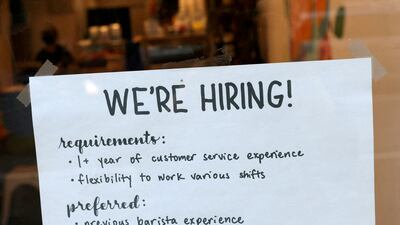 WE'RE HIRING!
requirements:
• 1+ year of customer service experience
• flexibility to work various shifts
preferred:
• previous barista experience